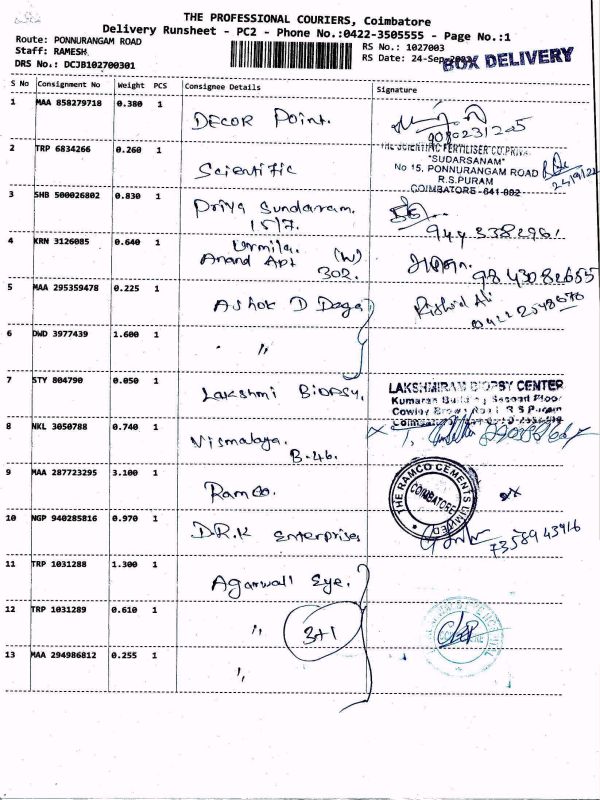 THE PROFESSIONAL COURIERS, Coimbatore
Delivery Runsheet - PC2 - Phone No.:0422-3505555 - Page No.:1
Route: PONNURANGAM ROAD
RS No.: 1027003
Staff: RAMESH
RS Date: 24-Sep
BOX DELIVERY
DRS No.: DCJB102700301
S No Consignment No Weight PCS Consignee Details Signature
1 MAA 858279718 0.380 1 DECOR Point.
2 TRP 6834266 0.260 1 Scientific
THE SCIENTIFIC FERTILISER CO.
"SUDARSANAM"
No 15, PONNURANGAM ROAD
R.S.PURAM
COIMBATORE - 641 002
3 SHB 500026802 0.830 1 Priya Sundaram.
15/7.
4 KRN 3126085 0.640 1 Urmila.
Anand Apt (W)
302.
9843082685
5 MAA 295359478 0.225 1 Ashok D Daga
6 DWD 3977439 1.600 1 "
7 STY 804790 0.050 1 Lakshmi Biopsy.
LAKSHMIRAM BIOPSY CENTER
Kumaran Building Second Floor
8 NKL 3050788 0.740 1 Vismalaya.
B-46.
9 MAA 287723295 3.100 1 Ramco.
THE RAMCO CEMENTS LIMITED
COIMBATORE
10 NGP 940285816 0.970 1 D.R.K Enterprises
11 TRP 1031288 1.300 1 Agarwall Eye.
12 TRP 1031289 0.610 1 "
3+1
13 MAA 294986812 0.255 1 "